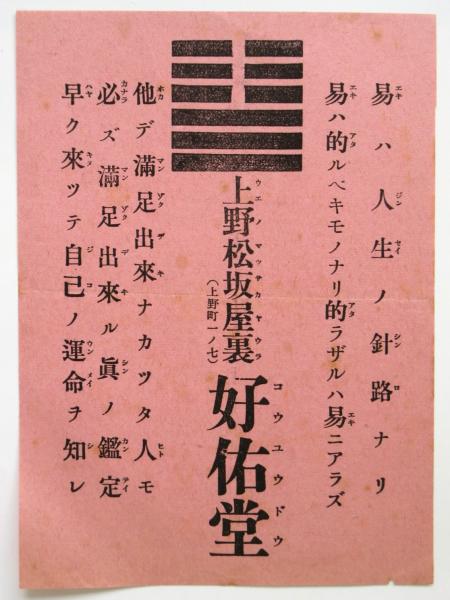 易ハ人生ノ針路ナリ
易ハ的ルベキモノナリ的ラザルハ易ニアラズ
上野松坂屋裏
(上野町一ノ七)
好佑堂
他デ滿足出來ナカツタ人モ
必ズ滿足出來ル眞ノ鑑定
早ク來ツテ自己ノ運命ヲ知レ